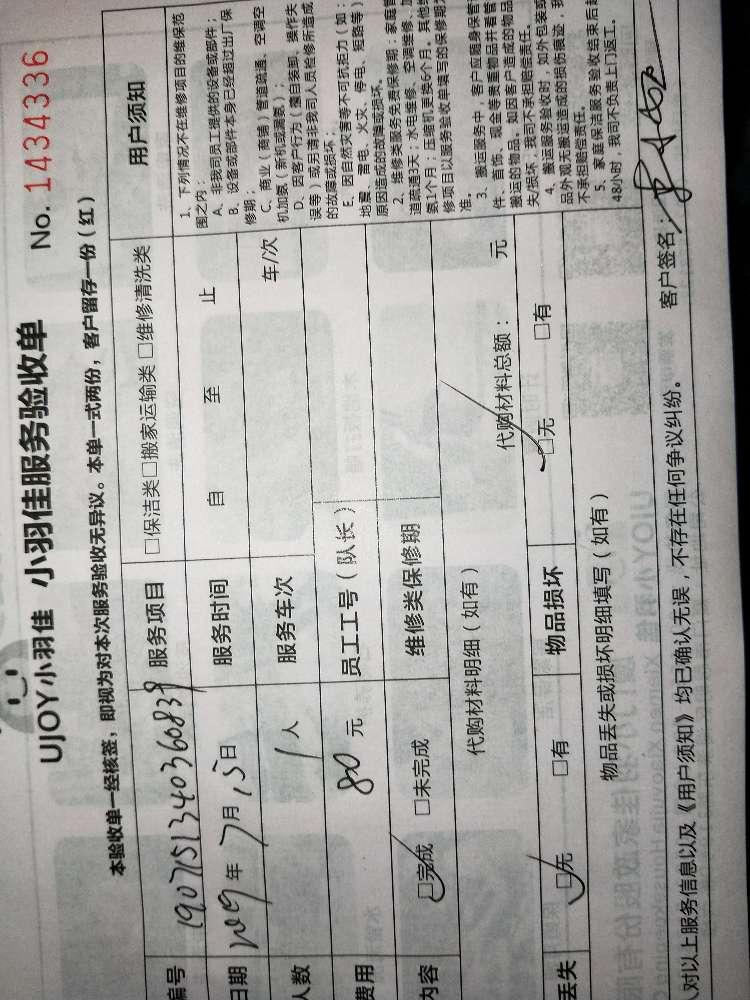 UJOY小羽佳 小羽佳服务验收单 No. 1434336
本验收单一经核签，即视为对本次服务验收无异议。本单一式两份，客户留存一份（红）
编号 190715134036083 服务项目 □保洁类□搬家运输类 □维修清洗类 用户须知
日期 2019年7月15日 服务时间 自 至 止
人数 1人 服务车次 车/次
费用 80元 员工工号（队长）
内容 □完成 □未完成 维修类保修期
代购材料明细（如有） 代购材料总额： 元
丢失 □无 □有 物品损坏 □无 □有
物品丢失或损坏明细填写（如有）
1、下列情况不在维修项目的维保范
围之内：
A、非我司员工提供的设备或部件；
B、设备或部件本身已经超过出厂保
修期；
C、商业（商铺）管道疏通、空调空
机加氨（新机或漏氨）；
D、因客户行为（擅自装卸、操作失
误等）或另请非我司人员检修所造成
的故障或损坏；
E、因自然灾害等不可抗拒力（如：
地震、雷电、火灾、停电、短路等）
原因造成的故障或损坏。
2、维修类服务免费保修期：家庭管
道疏通3天；水电维修、空调维修、加
氨1个月；压缩机更换6个月。其他维
修项目以服务验收单填写的保修期为
准。
3、搬运服务中，客户应随身保管
件、首饰、现金等贵重物品并看管
搬运的物品。如因客户造成的物品
失/损坏，我司不承担赔偿责任。
4、搬运服务验收时，如外包装或
品外观无搬运造成的损伤痕迹，我
不承担赔偿责任。
5、家庭保洁服务验收结束后超
48小时，我司不负责上门返工。
对以上服务信息以及《用户须知》均已确认无误，不存在任何争议纠纷。 客户签名：